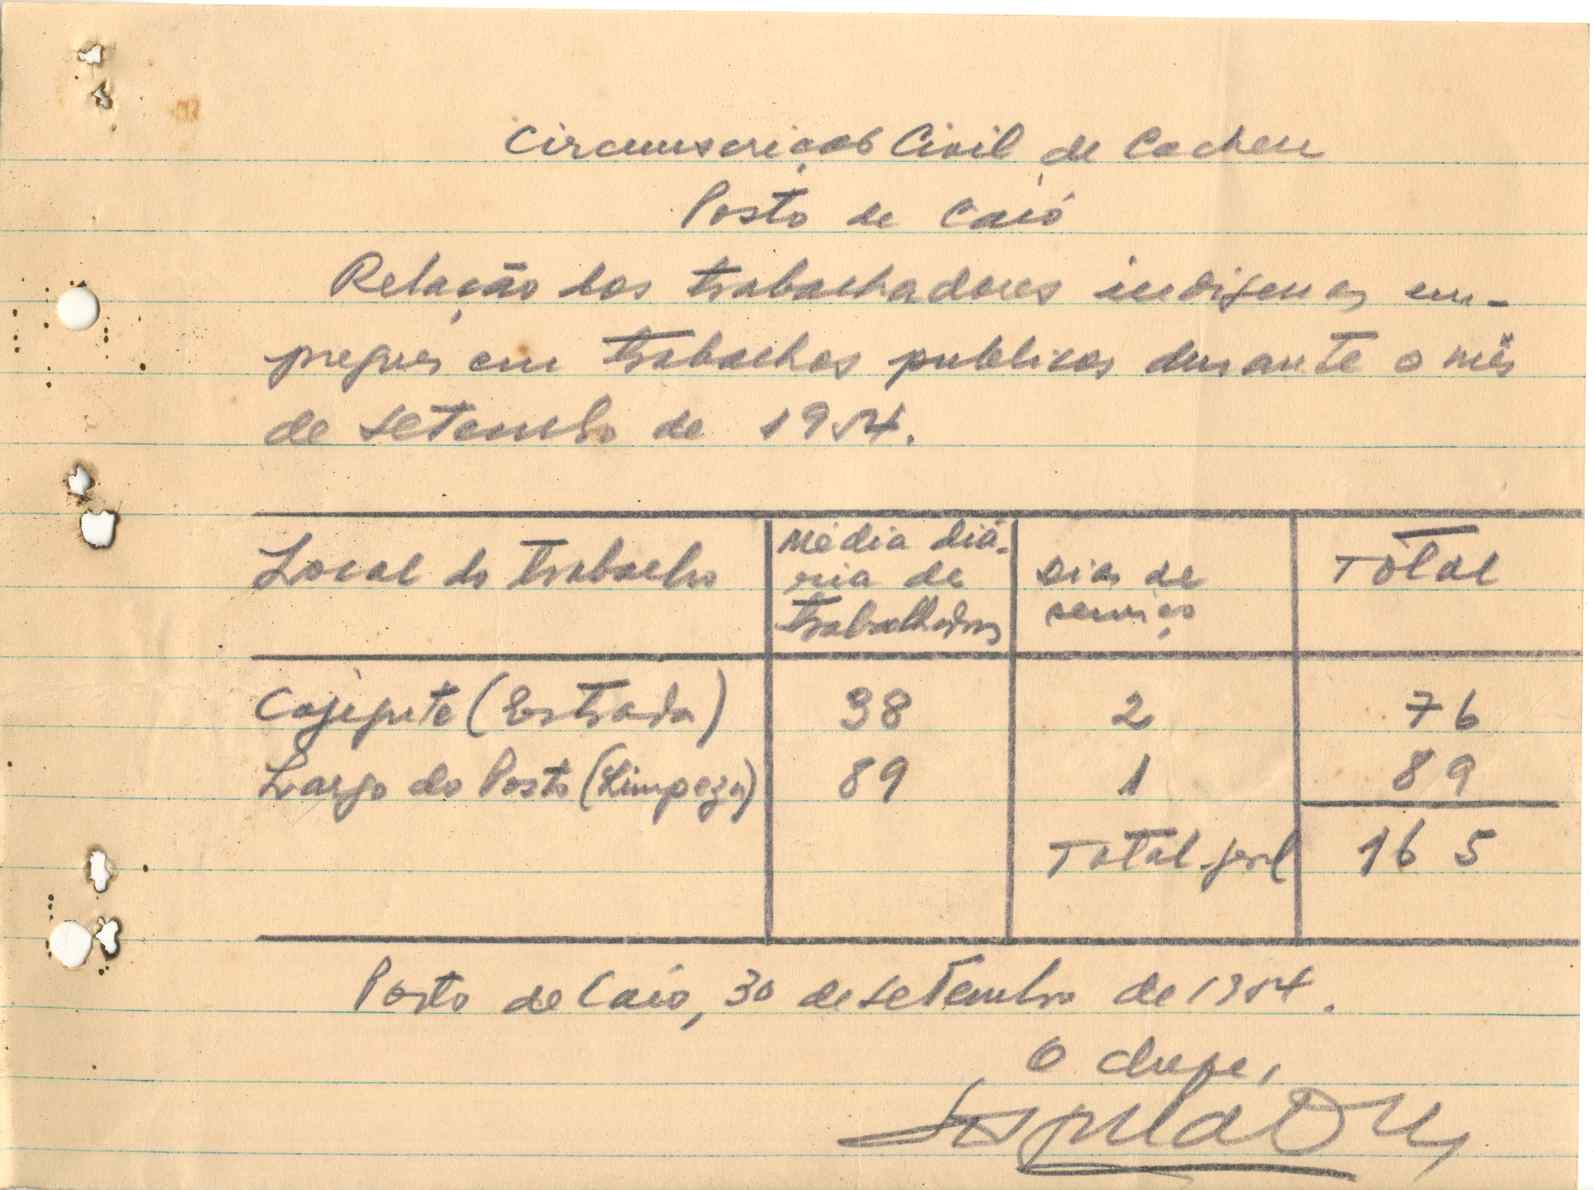 Circunscrição Civil de Cacheu
Posto de Caió
Relação dos trabalhadores indigenas em-
pregues em trabalhos publicos durante o mês
de setembro de 1954.
Local do trabalho
Média diá-
ria de
trabalhadores
Dias de
serviço
Total
Cajegute (Estrada) 38 2 76
Largo do Posto (Limpeza) 89 1 89
Total geral 165
Posto de Caió, 30 de setembro de 1954.
O chefe,